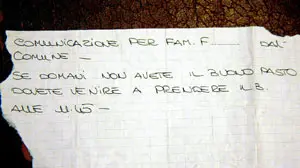 COMUNICAZIONE PER FAM. F____ DAL
COMUNE -
SE DOMANI NON AVETE IL BUONO PASTO
DOVETE VENIRE A PRENDERE IL B.
ALLE 11.45 -